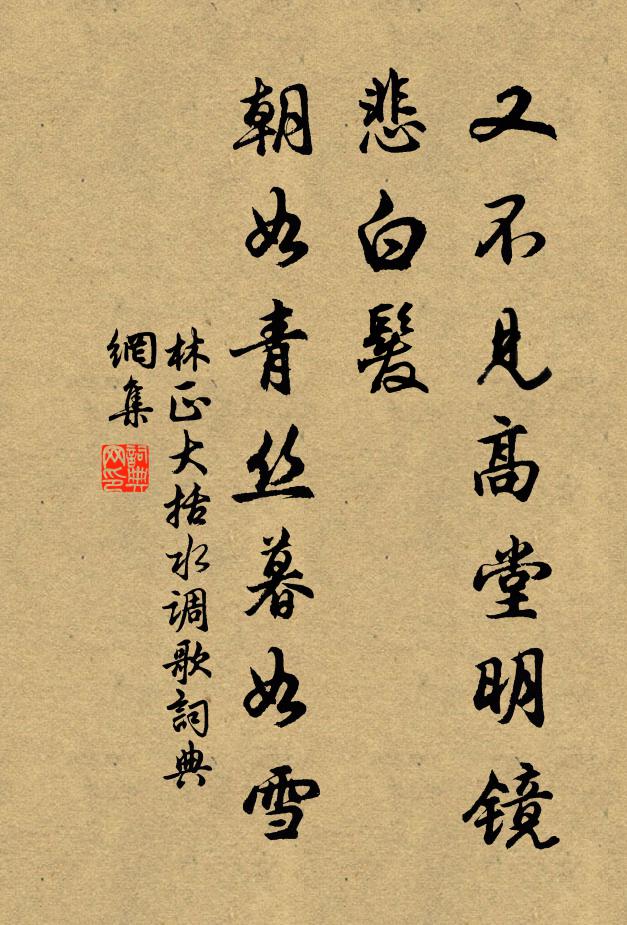 又不见高堂明镜
悲白髮
朝如青丝暮如雪
林正大括水调歌詞典
網集
詞典
网印